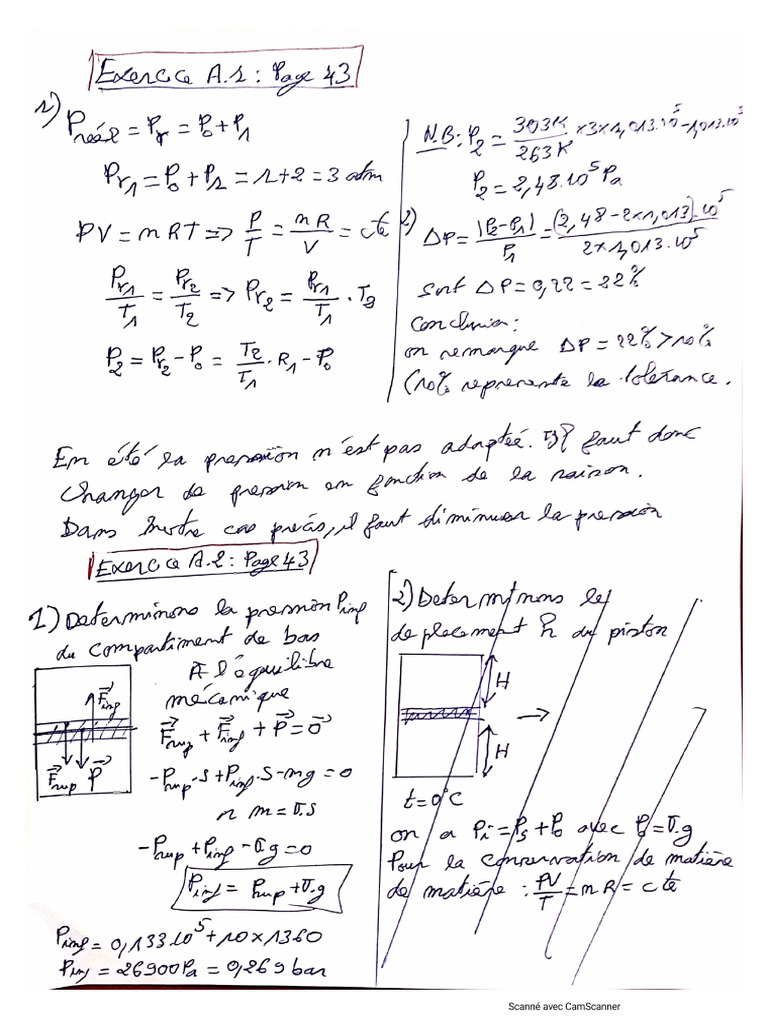 Exercice A.1 : Page 43
1) Préel = Pr = P0 + P1
Pr1 = P0 + P1 = 1 + 2 = 3 atm
PV = nRT => P/T = nR/V = cte
Pr1/T1 = Pr2/T2 => Pr2 = Pr1/T1 . T2
P2 = Pr2 - P0 = T2/T1 . R1 - P0
N.B : P2 = 303K/263K × 3×1,013.10^5 - 1,013.10^5
P2 = 2,48.10^5 Pa
2)
ΔP = |P2 - P1|/P1 = (2,48 - 2×1,013).10^5/2×1,013.10^5
soit ΔP = 0,22 = 22%
conclusion :
on remarque ΔP = 22% > 10%
(10% représente la tolérance.
En été la pression n'est pas adaptée. Il faut donc
changer de pression en fonction de la saison.
Dans notre cas précis, il faut diminuer la pression
Exercice A.2 : Page 43
1) Determinons la pression Pinf
du compartiment de bas
A l'équilibre
mécanique
Finf
Fsup P
Fsup + Finf + P = 0
-Psup.S + Pinf.S - mg = 0
m = σ.S
-Psup + Pinf - σ.g = 0
Pinf = Psup + σ.g
Pinf = 0,133.10^5 + 10×1360
Pinf = 26900Pa = 0,269 bar
2) Determinons le
deplacement h du piston
H
H
t = 0°C
on a Pi = Ps + P0 avec P0 = σ.g
Pour la conservation de matière
de matière : PV/T = nR = cte
Scanné avec CamScanner